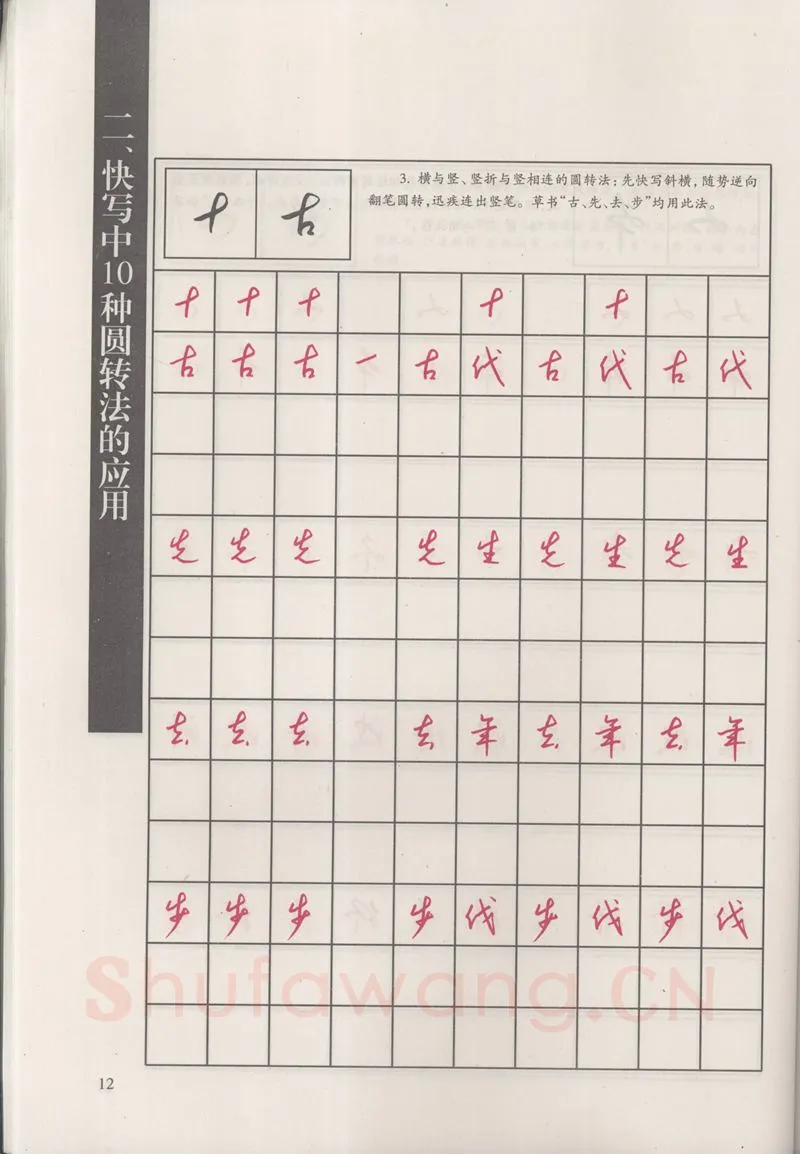 二、快写中10种圆转法的应用
3. 横与竖、竖折与竖相连的圆转法：先快写斜横，随势逆向
翻笔圆转，迅疾连出竖笔。草书“古、先、去、步”均用此法。
十 古
十 十 十 十 十
古 古 古 一 古 代 古 代 古 代
先 先 先 先 生 先 生 先 生
去 去 去 去 年 去 年 去 年
步 步 步 步 伐 步 伐 步 伐
Shufawang.CN
12